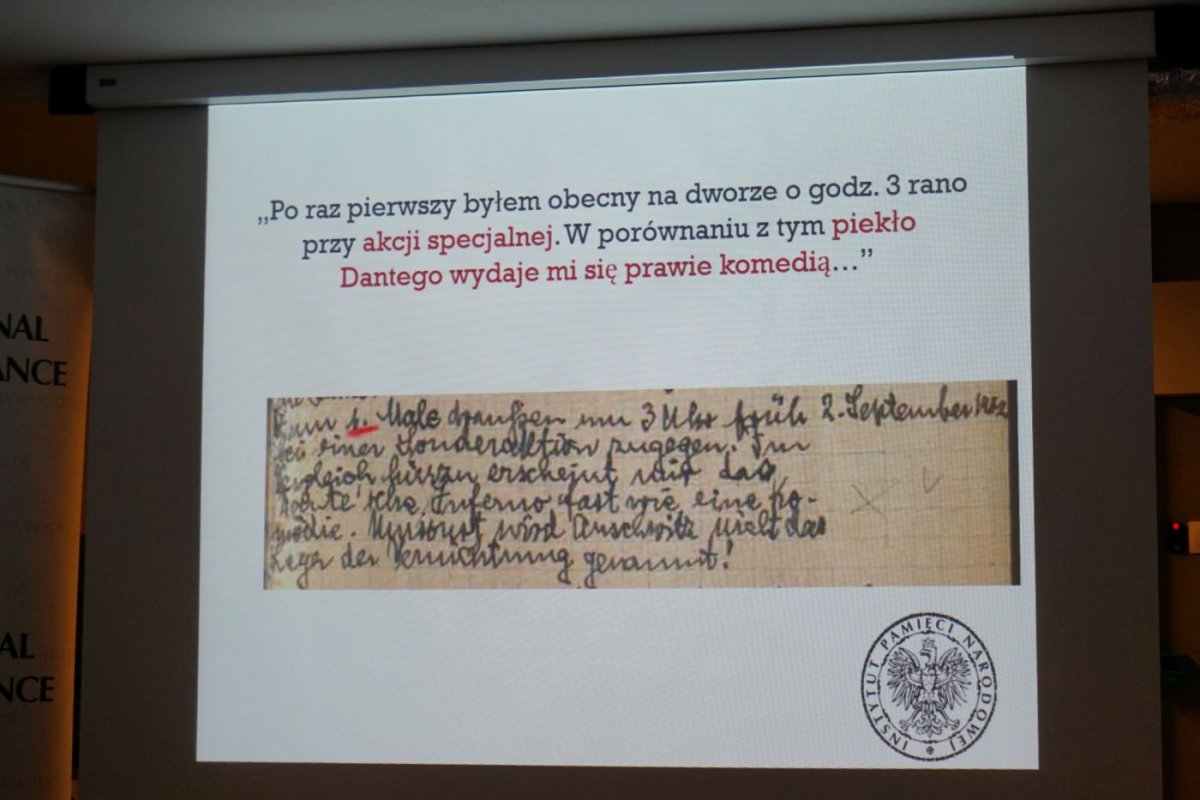 NAL
ANCE
AL
NCE
„Po raz pierwszy byłem obecny na dworze o godz. 3 rano
przy akcji specjalnej. W porównaniu z tym piekło
Dantego wydaje mi się prawie komedią…”
Zum 1. Male draußen um 3 Uhr früh 2. September 1942
bei einer Sonderaktion zugegen. Im
Vergleich hierzu erscheint mir das
Dante'sche Inferno fast wie eine Ko-
mödie. Umsonst wird Auschwitz nicht das
Lager der Vernichtung genannt!
INSTYTUT PAMIĘCI NARODOWEJ